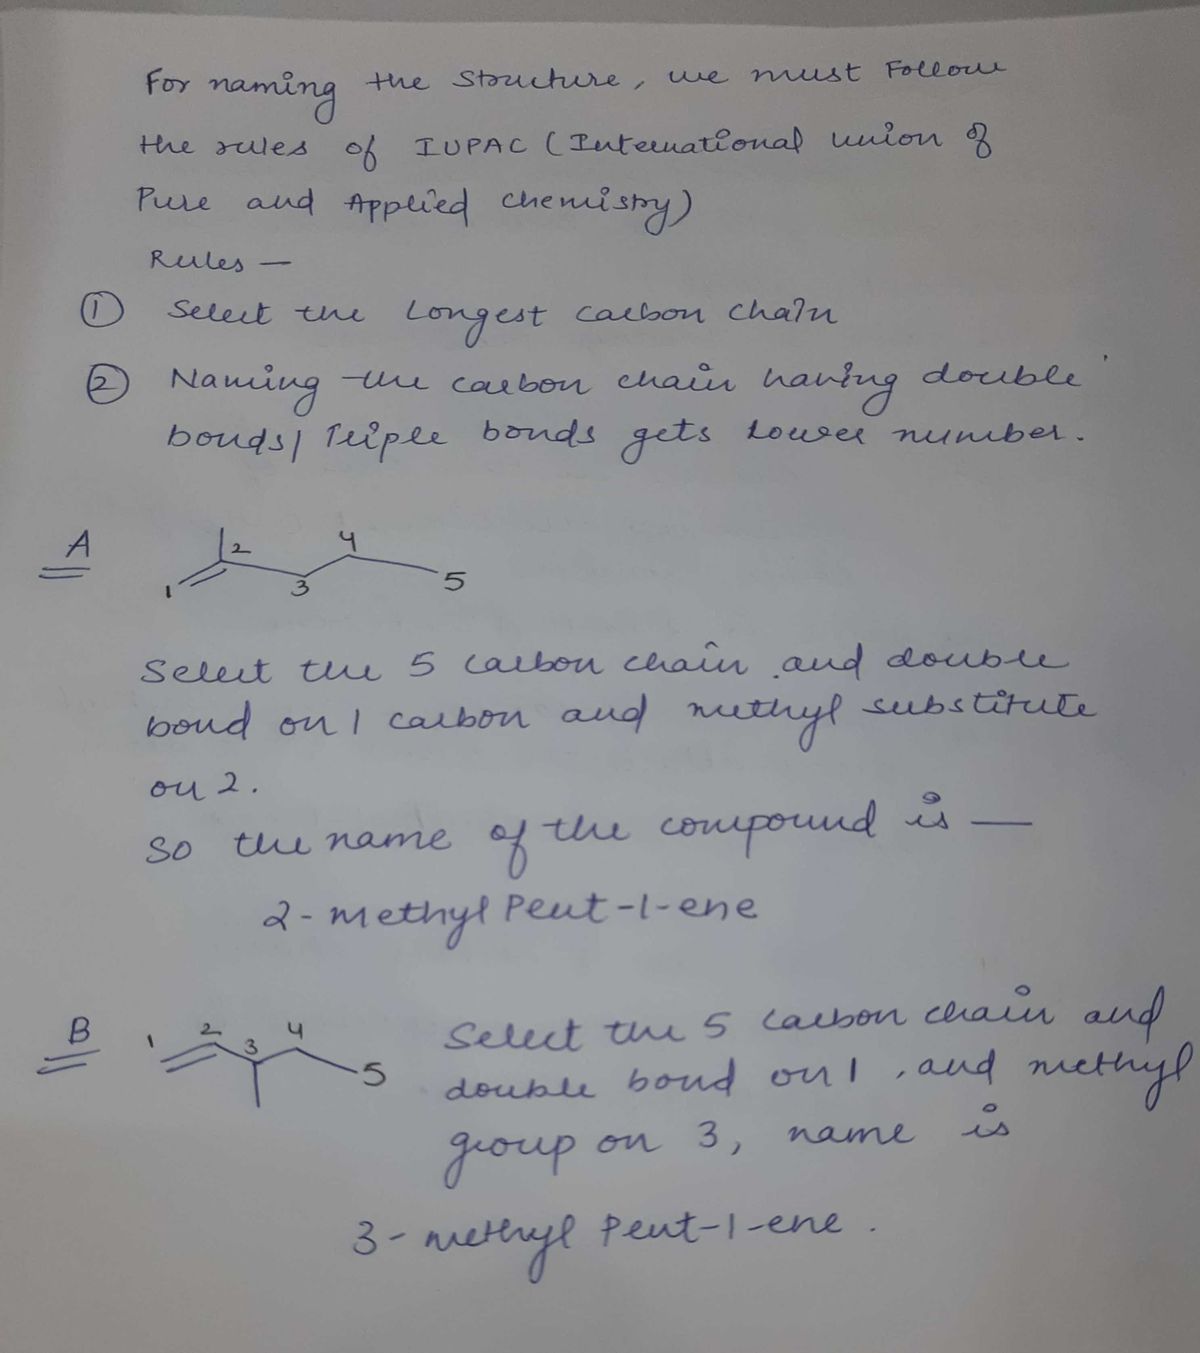 For naming the structure, we must Follow
the rules of IUPAC (International union of
Pure and Applied chemistry)
Rules —
① Select the Longest carbon chain
② Naming the carbon chain having double
bonds/ Triple bonds gets Lower number.
A
1 2 3 4 5
Select the 5 carbon chain and double
bond on 1 carbon and methyl substitute
on 2.
So the name of the compound is —
2-methyl Pent-1-ene
B
1 2 3 4 5
Select the 5 carbon chain and
double bond on 1, and methyl
group on 3, name is
3-methyl Pent-1-ene.